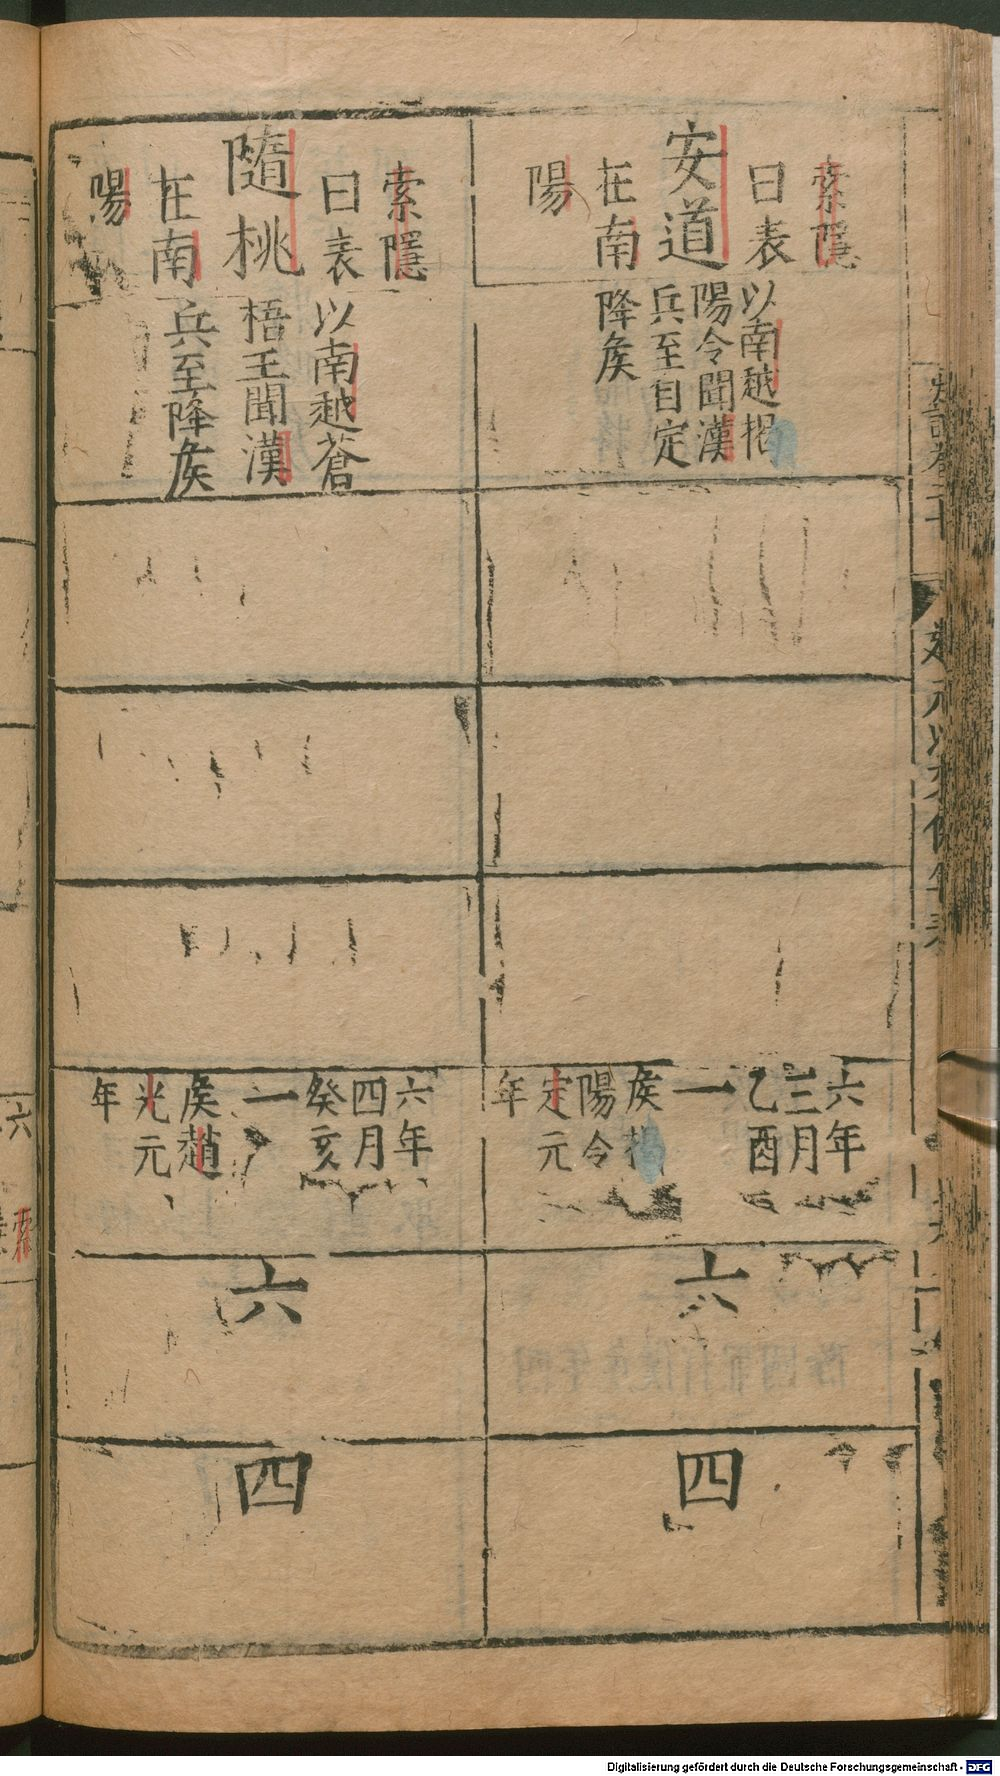 安道
索隱
曰表
在南
陽
以南越揭
陽令聞漢
兵至自定
降矦
六年
三月
乙酉
一
矦揭
陽令
定元
年
六
四
隨桃
索隱
曰表
在南
陽
以南越蒼
梧王聞漢
兵至降矦
六年
四月
癸亥
一
矦趙
光元
年
六
四
Digitalisierung gefördert durch die Deutsche Forschungsgemeinschaft - DFG